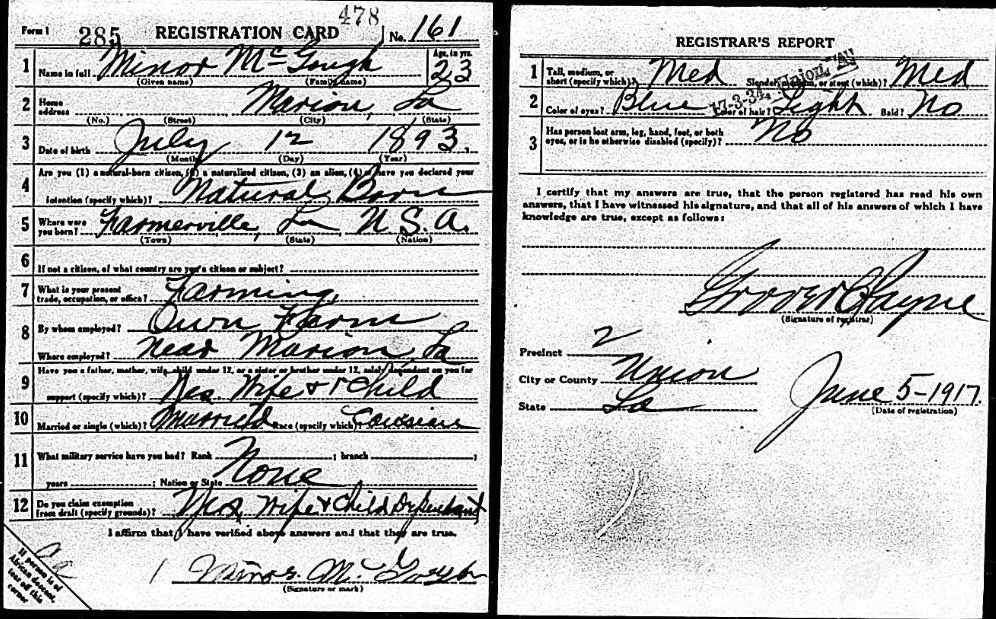 478
Form 1 285 REGISTRATION CARD No. 161
1 Name in full Minor McGough Age, in yrs. 23
(Given name) (Family name)
2 Home address Marion, La
(No.) (Street) (City) (State)
3 Date of birth July 12 1893.
(Month) (Day) (Year)
4 Are you (1) a natural-born citizen, (2) a naturalized citizen, (3) an alien, (4) have you declared your
intention (specify which)? Natural Born
5 Where were you born? Farmerville, La U.S.A.
(Town) (State) (Nation)
6 If not a citizen, of what country are you a citizen or subject?
7 What is your present trade, occupation, or office? Farming
8 By whom employed? Own Farm
Where employed? Near Marion, La
9 Have you a father, mother, wife, child under 12, or a sister or brother under 12, solely dependent on you for
support (specify which)? Yes. Wife & 1 Child
10 Married or single (which)? Married Race (specify which)?
11 What military service have you had? Rank None ; branch ;
years ; Nation or State
12 Do you claim exemption from draft (specify grounds)? Yes, Wife & Child Dependant
I affirm that I have verified above answers and that they are true.
Minor McGough
(Signature or mark)
If person is of
African descent,
tear off this
corner
REGISTRAR'S REPORT
1 Tall, medium, or short (specify which)? Med Slender, medium, or stout (which)? Med
17-3-34. Union, "A"
2 Color of eyes? Blue Color of hair? Light Bald? No
3 Has person lost arm, leg, hand, foot, or both
eyes, or is he otherwise disabled (specify)? No
I certify that my answers are true, that the person registered has read his own
answers, that I have witnessed his signature, and that all of his answers of which I have
knowledge are true, except as follows:
Grover C Payne
(Signature of registrar)
Precinct 2
City or County Union
State La
June 5-1917.
(Date of registration)